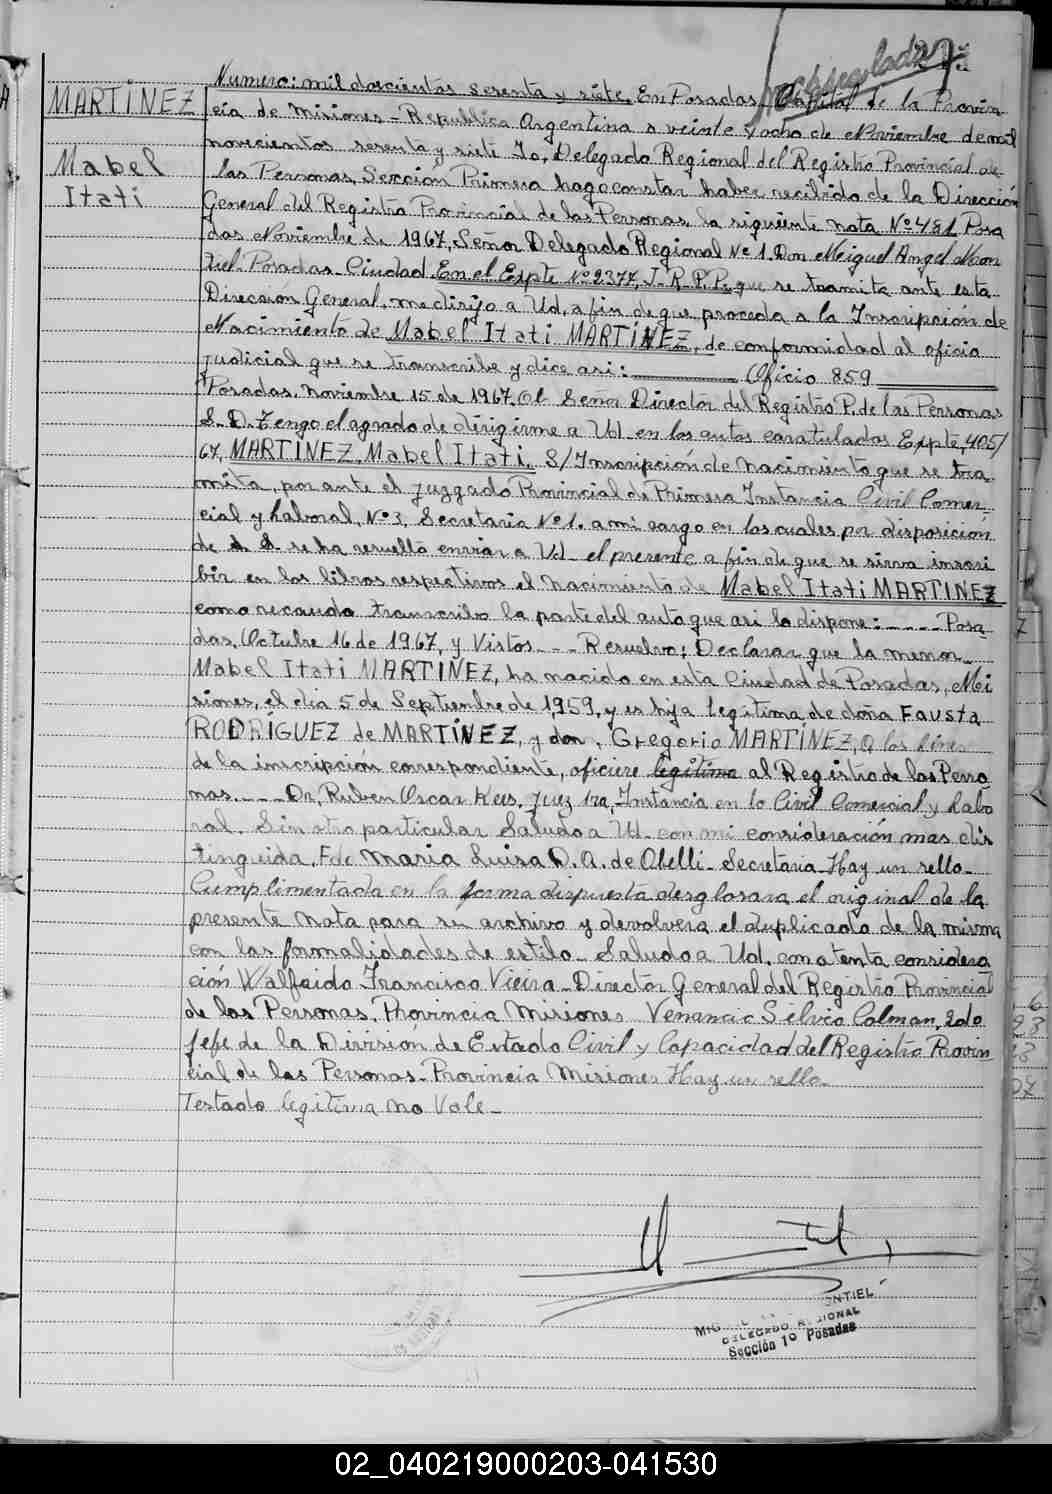 MARTINEZ
Mabel
Itati
Numero: mil doscientos sesenta y siete, En Posadas, Capital de la Provin
cia de Misiones - Republica Argentina a veinte y ocho de Noviembre de mil
novecientos sesenta y siete Yo, Delegado Regional del Registro Provincial de
las Personas, Sección Primera hago constar haber recibido de la Dirección
General del Registro Provincial de las Personas, la siguiente nota Nº 481 Posa
das Noviembre de 1967, Señor Delegado Regional Nº 1. Don Meiguel Angel Mon
tiel. Posadas. Ciudad. En el Expte Nº 2377, J. R. P. P. que se tramita ante esta
Dirección General, me dirijo a Ud, a fin de que proceda a la Inscripción de
Nacimiento de Mabel Itati MARTÍNEZ, de conformidad al oficio
judicial que se transcribe y dice asi: Oficio 859
Posadas, noviembre 15 de 1967. Al Señor Director del Registro P. de las Personas
S. D. Tengo el agrado de dirigirme a Ud en los autos caratulados Expte, 405/
67, MARTINEZ, Mabel Itati. S/ Inscripción de nacimiento que se tra
mita, por ante el juzgado Provincial de Primera Instancia Civil Comer
cial y Laboral, Nº 3, Secretaria Nº 1. a mi cargo en los cuales por disposición
de S. S. se ha resuelto enviar a Ud. el presente a fin de que se sirva inscri
bir en los libros respectivos el nacimiento de Mabel Itati MARTINEZ
como recaudo transcribo la parte del auto que asi lo dispone: ---- Posa
das, Octubre 16 de 1967, y Vistos --- Resuelvo; Declarar que la menor
Mabel Itati MARTINEZ, ha nacido en esta Ciudad de Posadas, Mi
siones, el día 5 de Septiembre de 1959, y es hija legitima de doña Fausta
RODRÍGUEZ de MARTÍNEZ, y don, Gregorio MARTÍNEZ, a los fines
de la inscripción correspondiente, oficiese legitima al Registro de las Perso
nas. ---- Dr, Ruben Oscar Kees, Juez 1ra, Instancia en lo Civil Comercial y Labo
ral. Sin otro particular Saludo a Ud con mi consideración mas dis
tinguida. Fdo Maria Luisa D. A. de Abelli - Secretaria - Hay un sello -
Cumplimentada en la forma dispuesta desglosara el original de la
presente nota para su archivo y devolvera el duplicado de la misma
con las formalidades de estilo - Saludo a Ud, con atenta considera
ción Walfrido Francisco Vieira - Director General del Registro Provincial
de las Personas. Provincia Misiones Venancio Silvio Colman, 2do
Jefe de la División de Estado Civil y Capacidad del Registro Provin
cial de las Personas - Provincia Misiones Hay un sello -
Testado legitima no Vale -
DELEGADO REGIONAL
Sección 1º Posadas
02_040219000203-041530